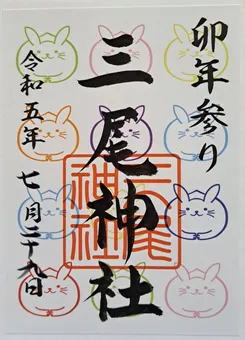 卯年参り
三尾神社
令和五年 七月二十九日
三尾神社